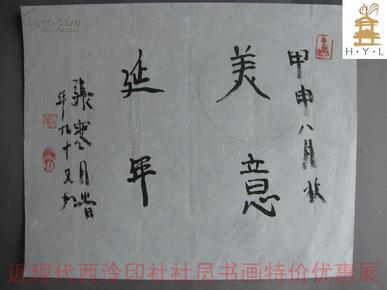 甲申八月於
美意
延年
張寒月書
年九十又九
近现代西泠印社社员书画特价优惠展
H·Y·L